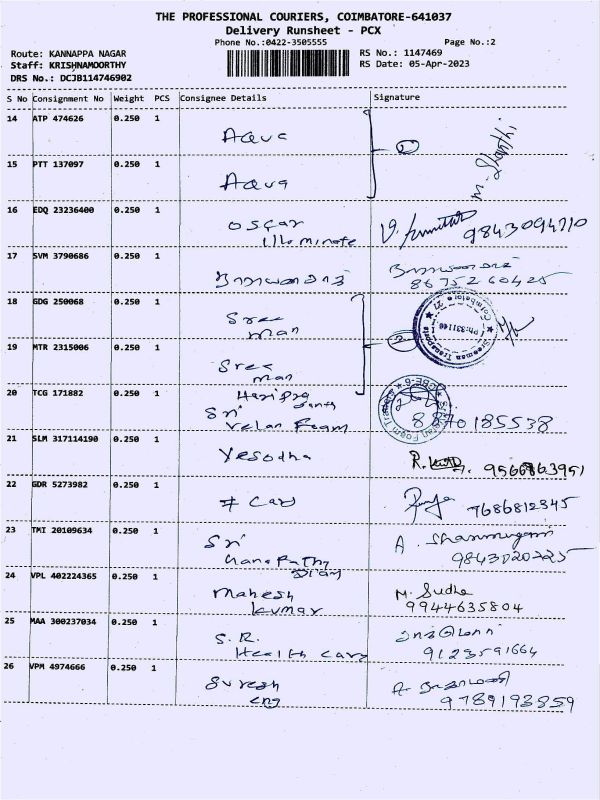 THE PROFESSIONAL COURIERS, COIMBATORE-641037
Delivery Runsheet - PCX
Phone No.:0422-3505555 Page No.:2
Route: KANNAPPA NAGAR RS No.: 1147469
Staff: KRISHNAMOORTHY RS Date: 05-Apr-2023
DRS No.: DCJB114746902
S No Consignment No Weight PCS Consignee Details Signature
14 ATP 474626 0.250 1
Aqua
15 PTT 137097 0.250 1
Aqua
16 EDQ 23236400 0.250 1
Oscar
9843094710
17 SVM 3790686 0.250 1
8675260425
18 GDG 250068 0.250 1
Sree
man
2
19 MTR 2315006 0.250 1
Sree
man
20 TCG 171882 0.250 1
Sri
Velan Foam
8870185538
21 SLM 317114190 0.250 1
Yesodha
22 GDR 5273982 0.250 1
7686812345
23 TMI 20109634 0.250 1
Sri
A. Shanmugam
24 VPL 402224365 0.250 1
Mahesh M. Sudha
kumar 9944635804
25 MAA 300237034 0.250 1
S.R.
Health care 9123591664
26 VPM 4974666 0.250 1
Suresh
eng 9789193859